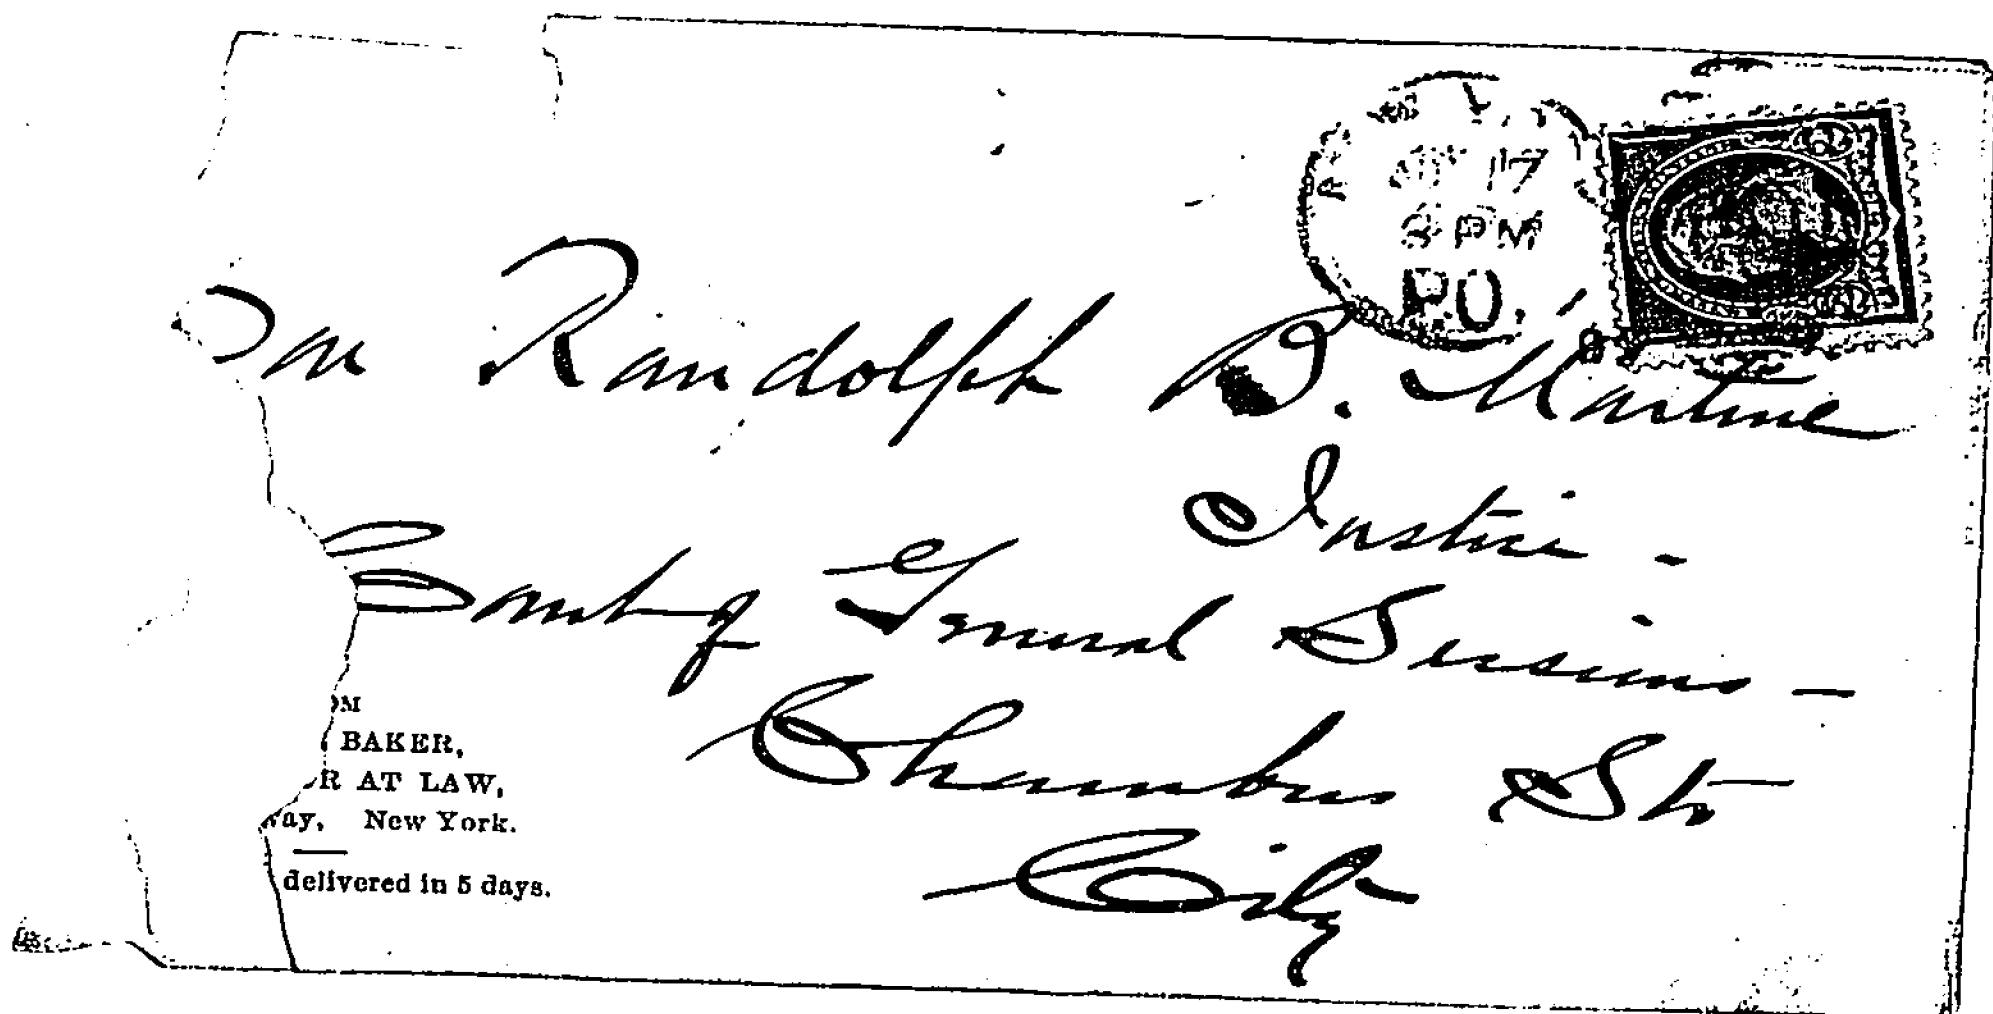 17
PM
P.O.
Hon Randolph B. Martine
Justice -
Court of General Sessions -
Chambers St
City
OM
BAKER,
R AT LAW,
way, New York.
delivered in 5 days.